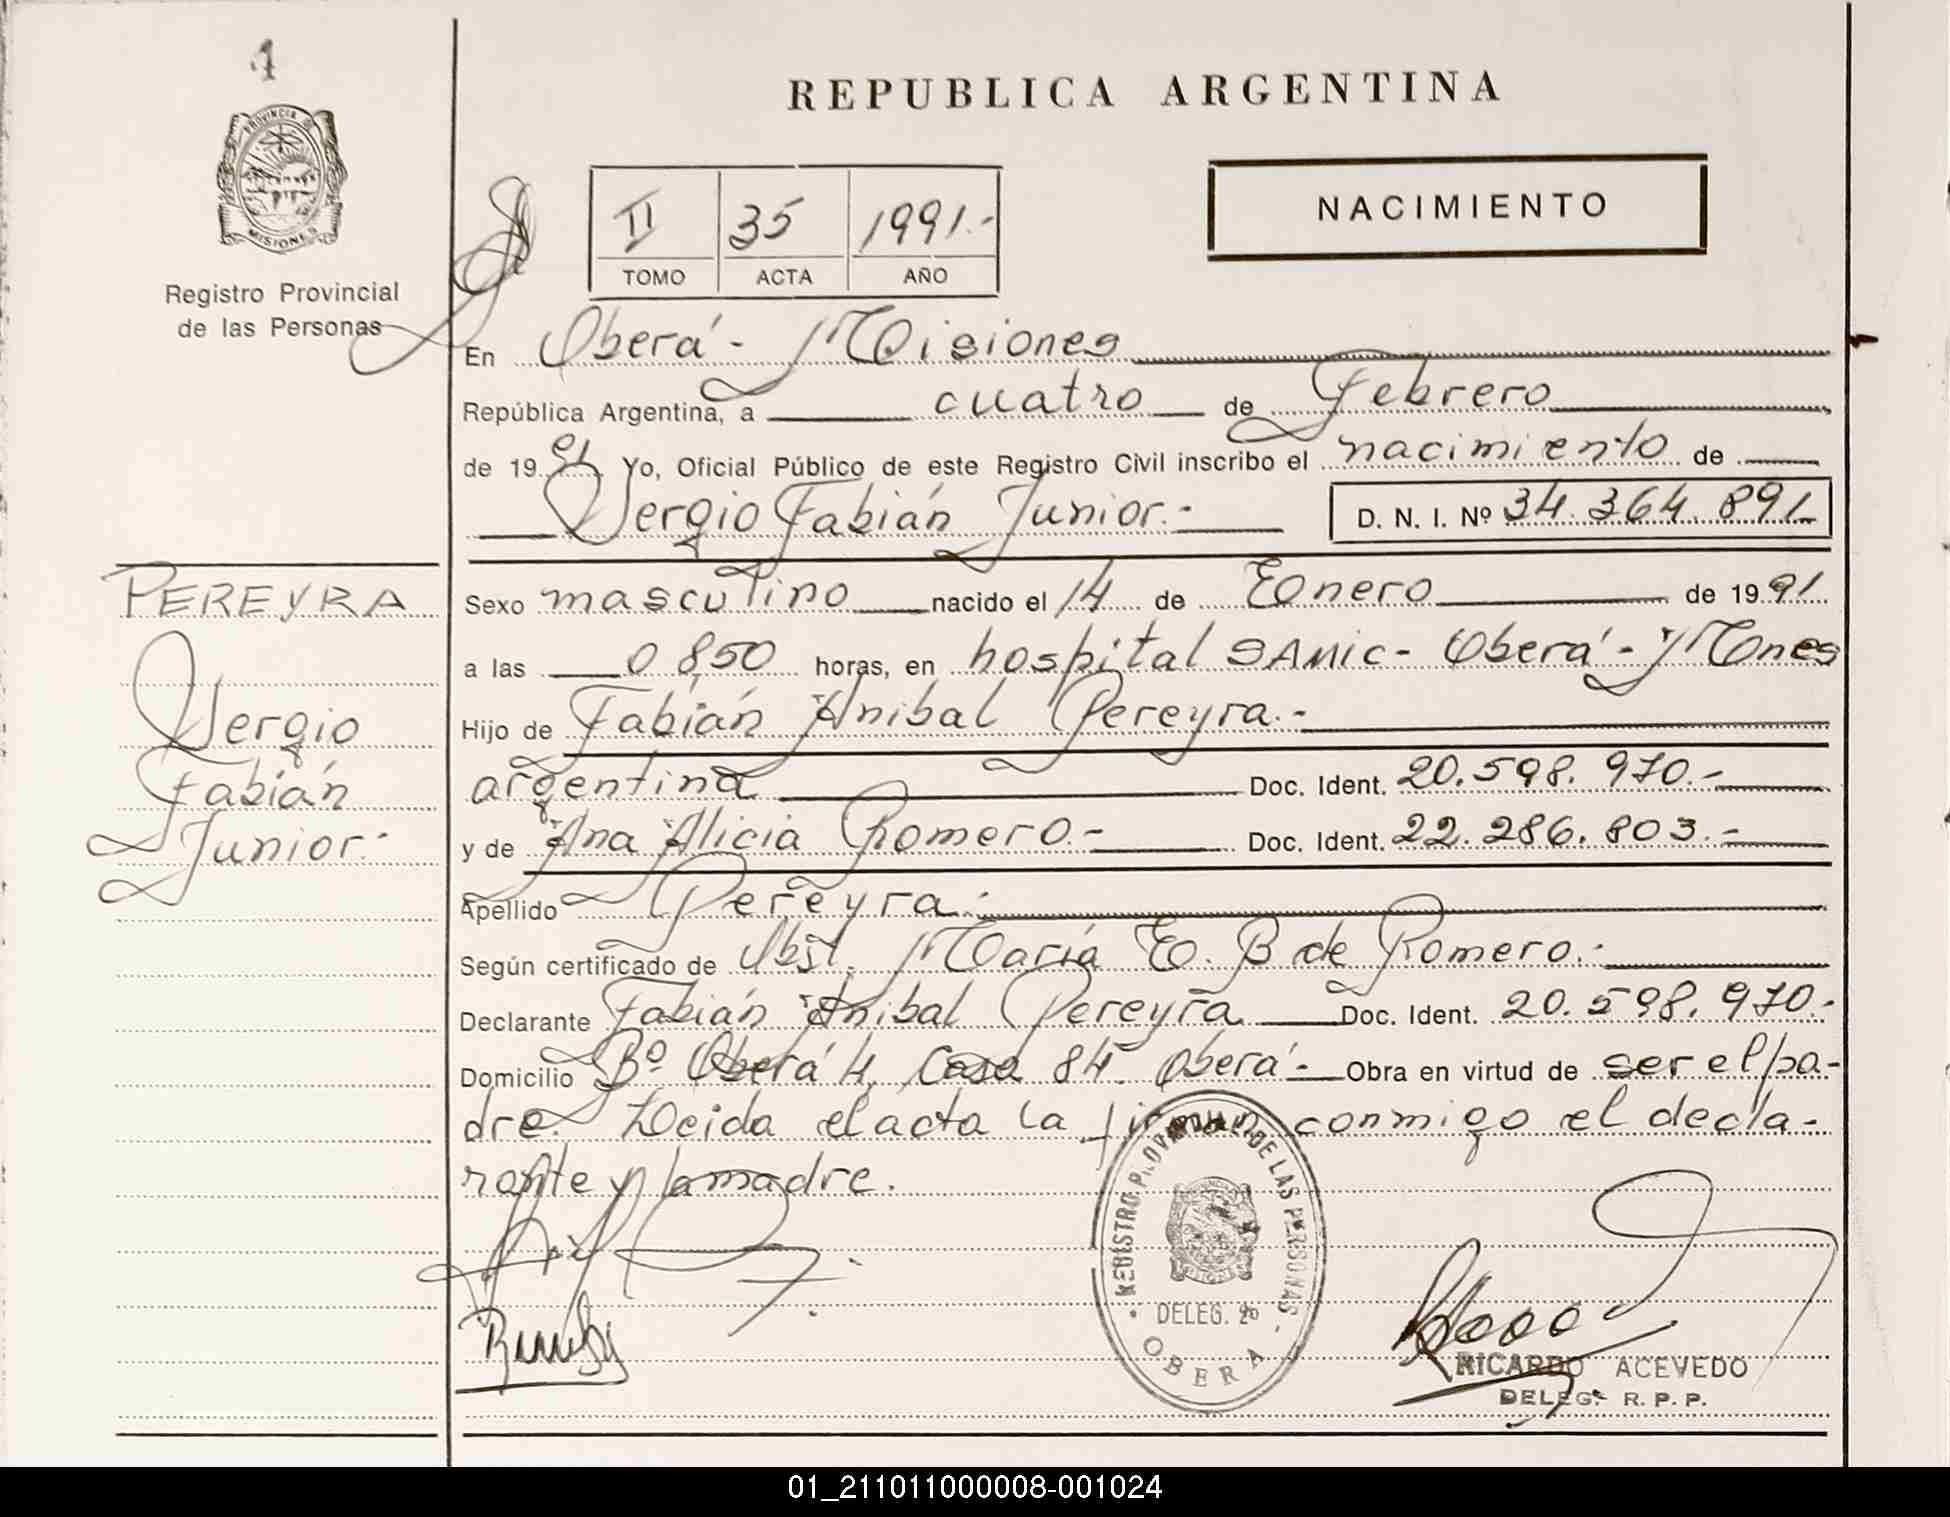 1
REPUBLICA ARGENTINA
PROVINCIA DE
MISIONES
Registro Provincial
de las Personas
II 35 1991.-
TOMO ACTA AÑO
NACIMIENTO
En Oberá - Misiones
República Argentina, a cuatro de Febrero
de 19 91 Yo, Oficial Público de este Registro Civil inscribo el nacimiento de
Sergio Fabián Junior.- D. N. I. Nº 34.364.891
PEREYRA
Sergio
Fabián
Junior.-
Sexo masculino nacido el 14 de Enero de 19 91.
a las 0 8,50 horas, en hospital SAMIC - Oberá - Mnes
Hijo de Fabián Anibal Pereyra.-
argentina Doc. Ident. 20.598.970.-
y de Ana Alicia Romero.- Doc. Ident. 22.286.803.-
Apellido Pereyra.-
Según certificado de Obst. María E. B de Romero.-
Declarante Fabián Anibal Pereyra Doc. Ident. 20.598.970.-
Domicilio Bº Oberá 4, Casa 84. Oberá - Obra en virtud de ser el pa-
dre. Leida el acta la firman conmigo el decla-
rante y la madre.
REGISTRO PROVINCIAL DE LAS PERSONAS
DELEG. 26
OBERA
RICARDO ACEVEDO
DELEG. R. P. P.
01_211011000008-001024